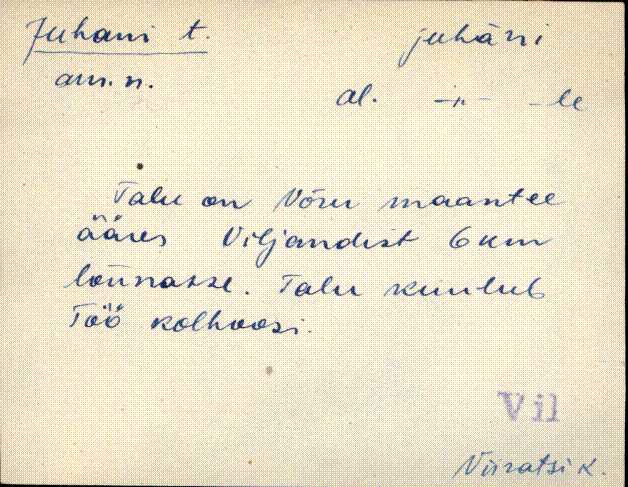 Juhani t. juhäni
am. n.
al. -"- -le
Talu on Võru maantee
ääres Viljandist 6 km
lõunasse. Talu kuulub
Töö kolhoosi.
Vil
Viiratsi k.